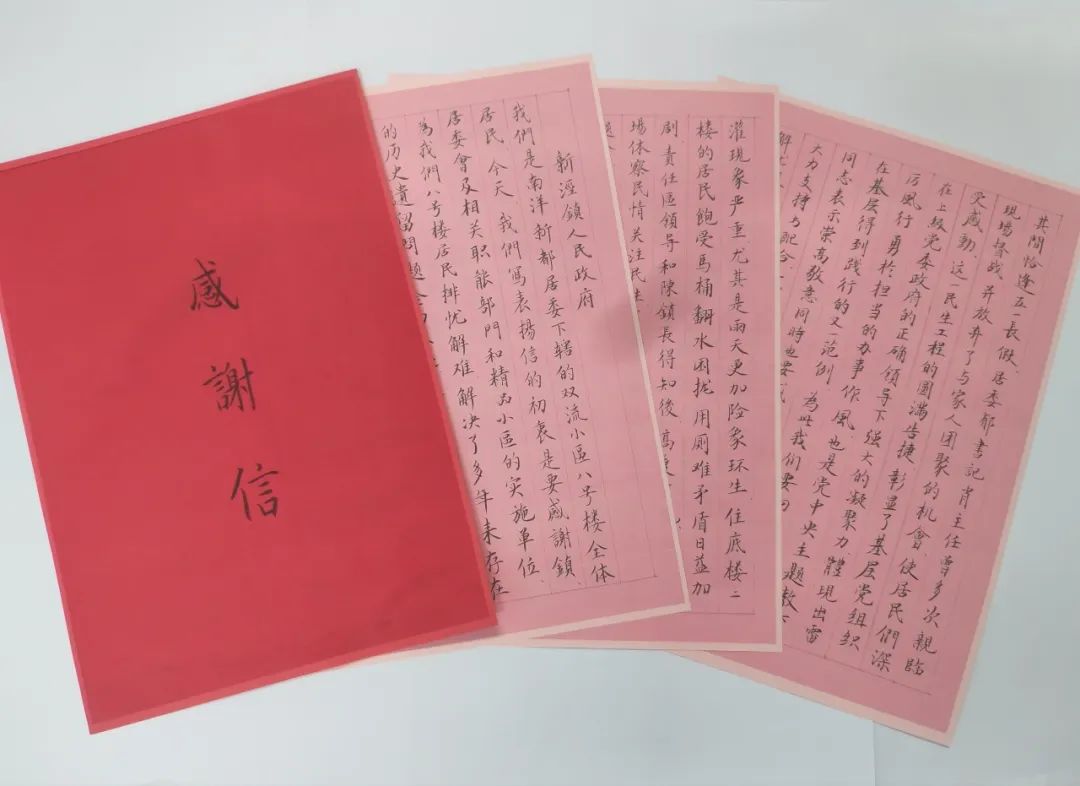 感謝信
新涇鎮人民政府
我們是南洋新都居委下辖的双流小區八号楼全体
居民、今天、我們寫表揚信的初衷是要感謝鎮、
居委會及相关职能部門和精品小區的实施單位、
為我們八号楼居民排忧解难解决了多年来存在
的历史遺留問題
灌現象严重尤其是雨天更加险象环生、住底楼二
楼的居民飽受馬桶翻水困扰用厠难矛盾日益加
剧責任區領导和陳鎮長得知後、高
場体察民情关注民生
其間恰逢五一長假、居委郁書記肖主任曾多次親臨
現場督战、并放弃了与家人团聚的机會、使居民們深
受感動、这一民生工程的圆满告捷彰显了基层党组织
在上級党委政府的正确領导下强大的凝聚力、體現出雷
厉風行勇於担当的办事作風、也是党中央主題教
在基层得到践行的又一范例、為此我们要向
同志表示崇高敬意同時也要
大力支持与配合